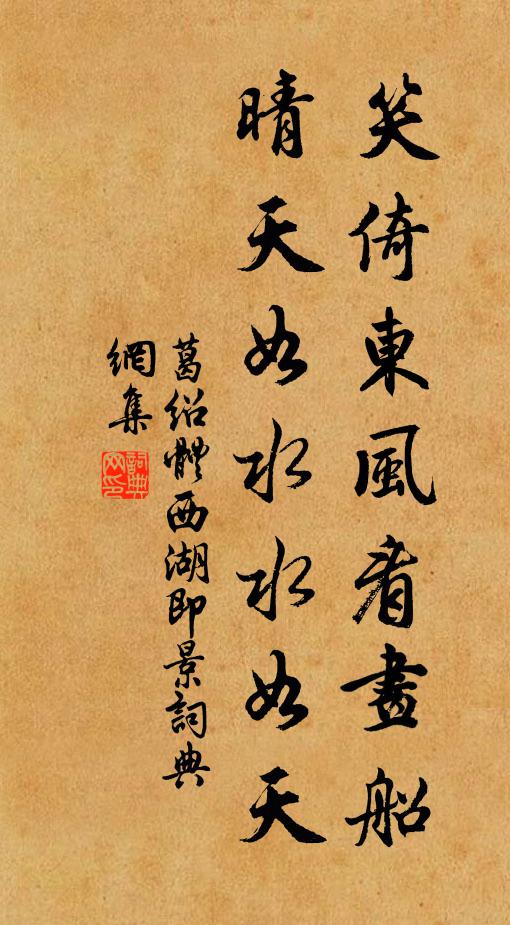 笑倚東風看畫船
晴天如水水如天
葛紹體西湖即景詞典
網集
詞典網印